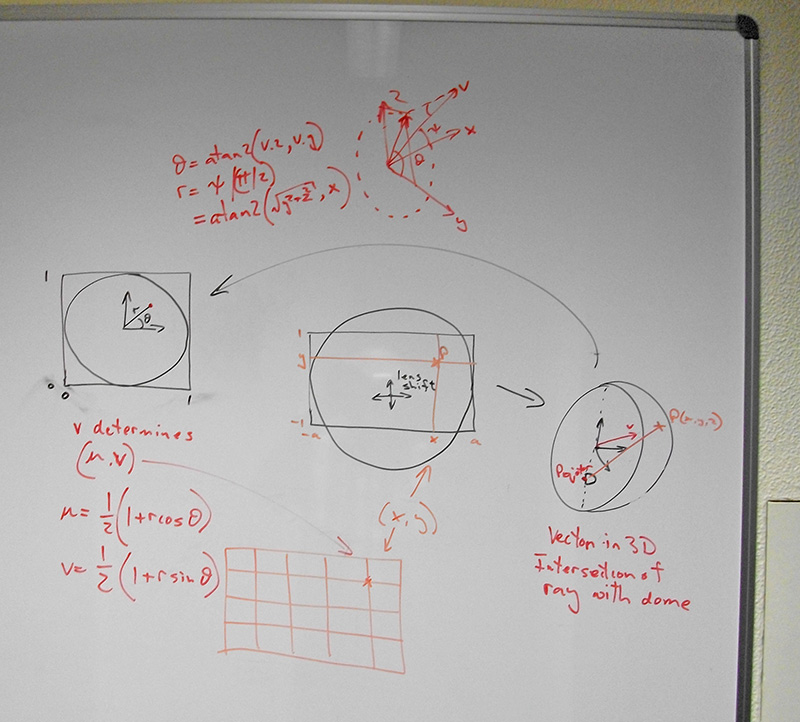 z
v
ψ
x
θ
y
θ = atan2(v.z, v.y)
r = ψ/(π/2)
= atan2(√y²+z², x)
1
r
θ
0
0
1
1
y
P
lens
shift
-1
-a
x
a
v
P(x,y,z)
Projector
v determines
(u,v)
u = 1/2 (1+rcosθ)
v = 1/2 (1+rsinθ)
(x,y)
Vector in 3D
Intersection of
ray with dome